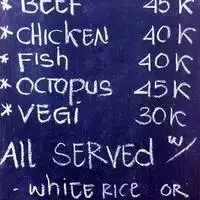 * BEEF 45 K
* CHICKEN 40 K
* FISH 40K
* OCTOPUS 45K
* VEGI 30K
All SERVED w/
- WHITE RICE OR